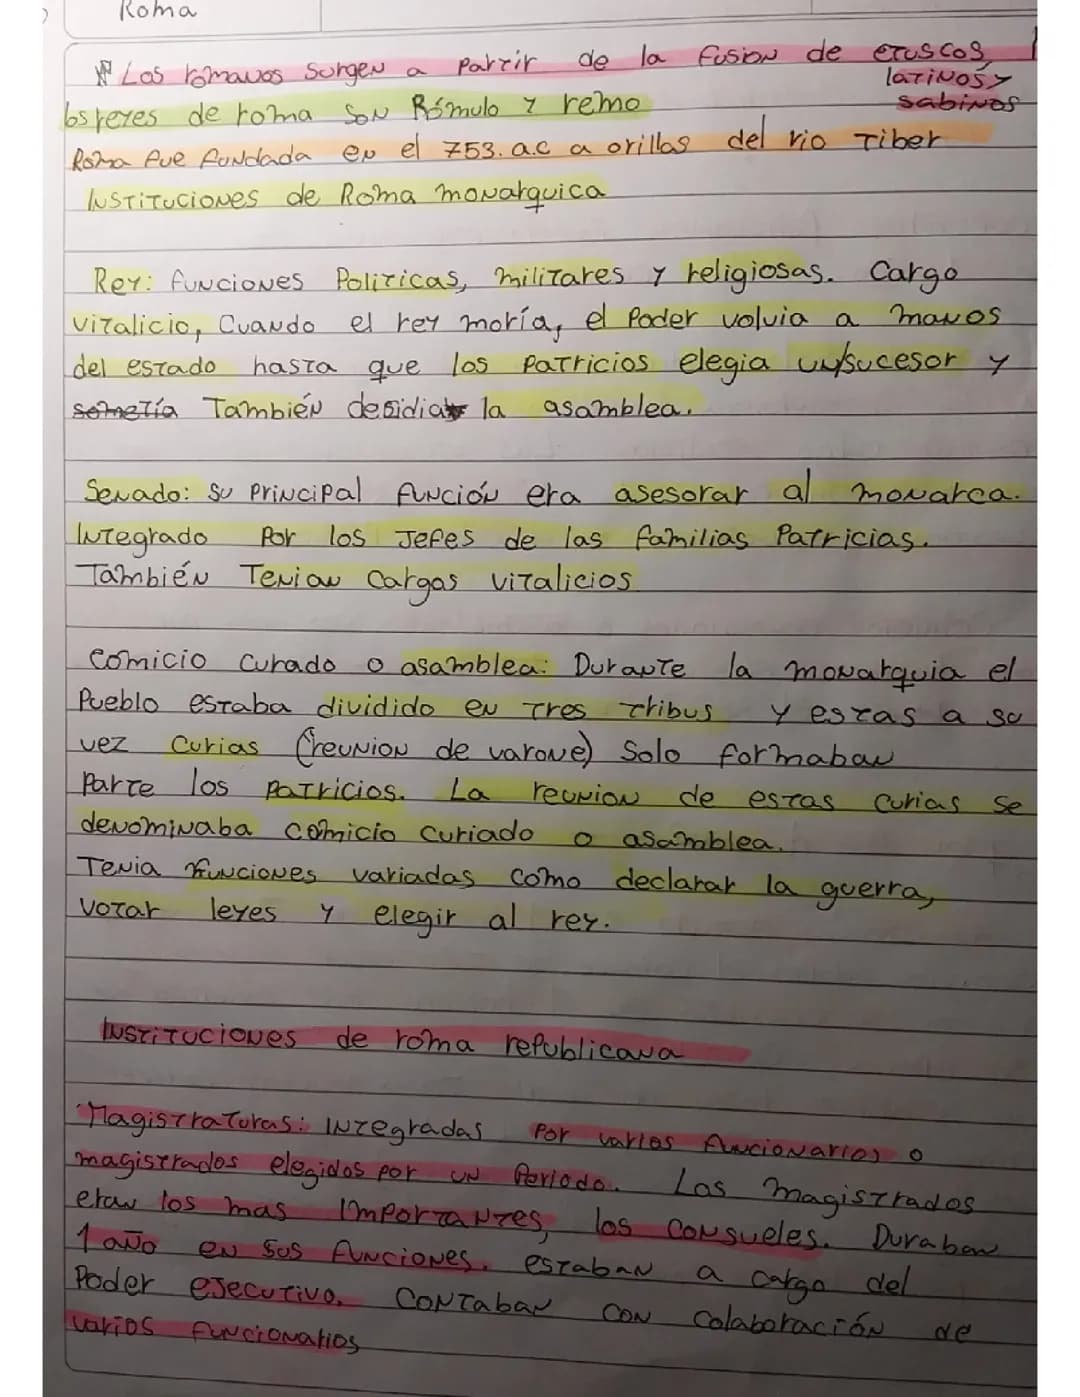 Roma
Los romanos surgen a partir de la fusion de etuscos,
latinos y
sabinos
los reyes de roma son Rómulo y remo
Roma fue fundada en el 753. a.c a orillas del rio Tiber
Instituciones de Roma monarquica
Rey: funciones Politicas, militares y religiosas. Cargo
vitalicio, Cuando el rey moría, el Poder volvia a manos
del estado hasta que los patricios elegia un sucesor y
sometía También desidia la asamblea.
Senado: Su Principal función era asesorar al monarca.
Integrado Por los Jefes de las familias Patricias.
También Tenian Cargos vitalicios
Comicio Curado o asamblea: Durante la monarquia el
Pueblo estaba dividido en tres tribus y estas a su
vez Curias (reunion de varone) Solo formaban
Parte los patricios. La reunion de estas curias se
denominaba comicio curiado o asamblea.
Tenia funciones variadas como declarar la guerra,
votar leyes y elegir al rey.
Instituciones de roma republicana
Magistraturas: Integradas Por varios funcionarios o
magistrados elegidos por un Periodo. Los magistrados
eran los mas importantes, los consueles. Duraban
1 año en sus funciones. estaban a cargo del
Poder ejecutivo. Contaban con colaboración de
varios funcionarios